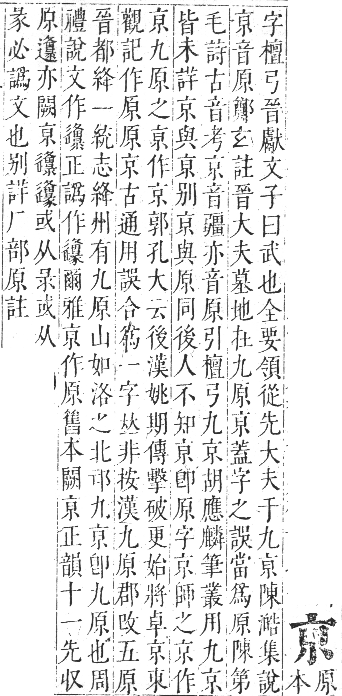 亰
原
本
字檀弓晉獻文子曰武也全要領從先大夫于九亰陳澔集說
亰音原鄭玄註晉大夫墓地在九原京蓋字之誤當爲原陳第
毛詩古音考京音疆亦音原引檀弓九京胡應麟筆叢用九京
皆未詳京與亰別亰與原同後人不知亰卽原字京師之京作
亰九原之亰作京郭孔大云後漢姚期傳擊破更始將卓京東
觀記作原原京古通用誤合爲一字𠀤非按漢九原郡改五原
晉都絳一統志絳州有九原山如洛之北邙九亰卽九原也周
禮說文作邍正譌作爾雅亰作原舊本闕亰正韻十一先収
原邍亦闕亰或从彔或从
彖必譌文也別詳厂部原註